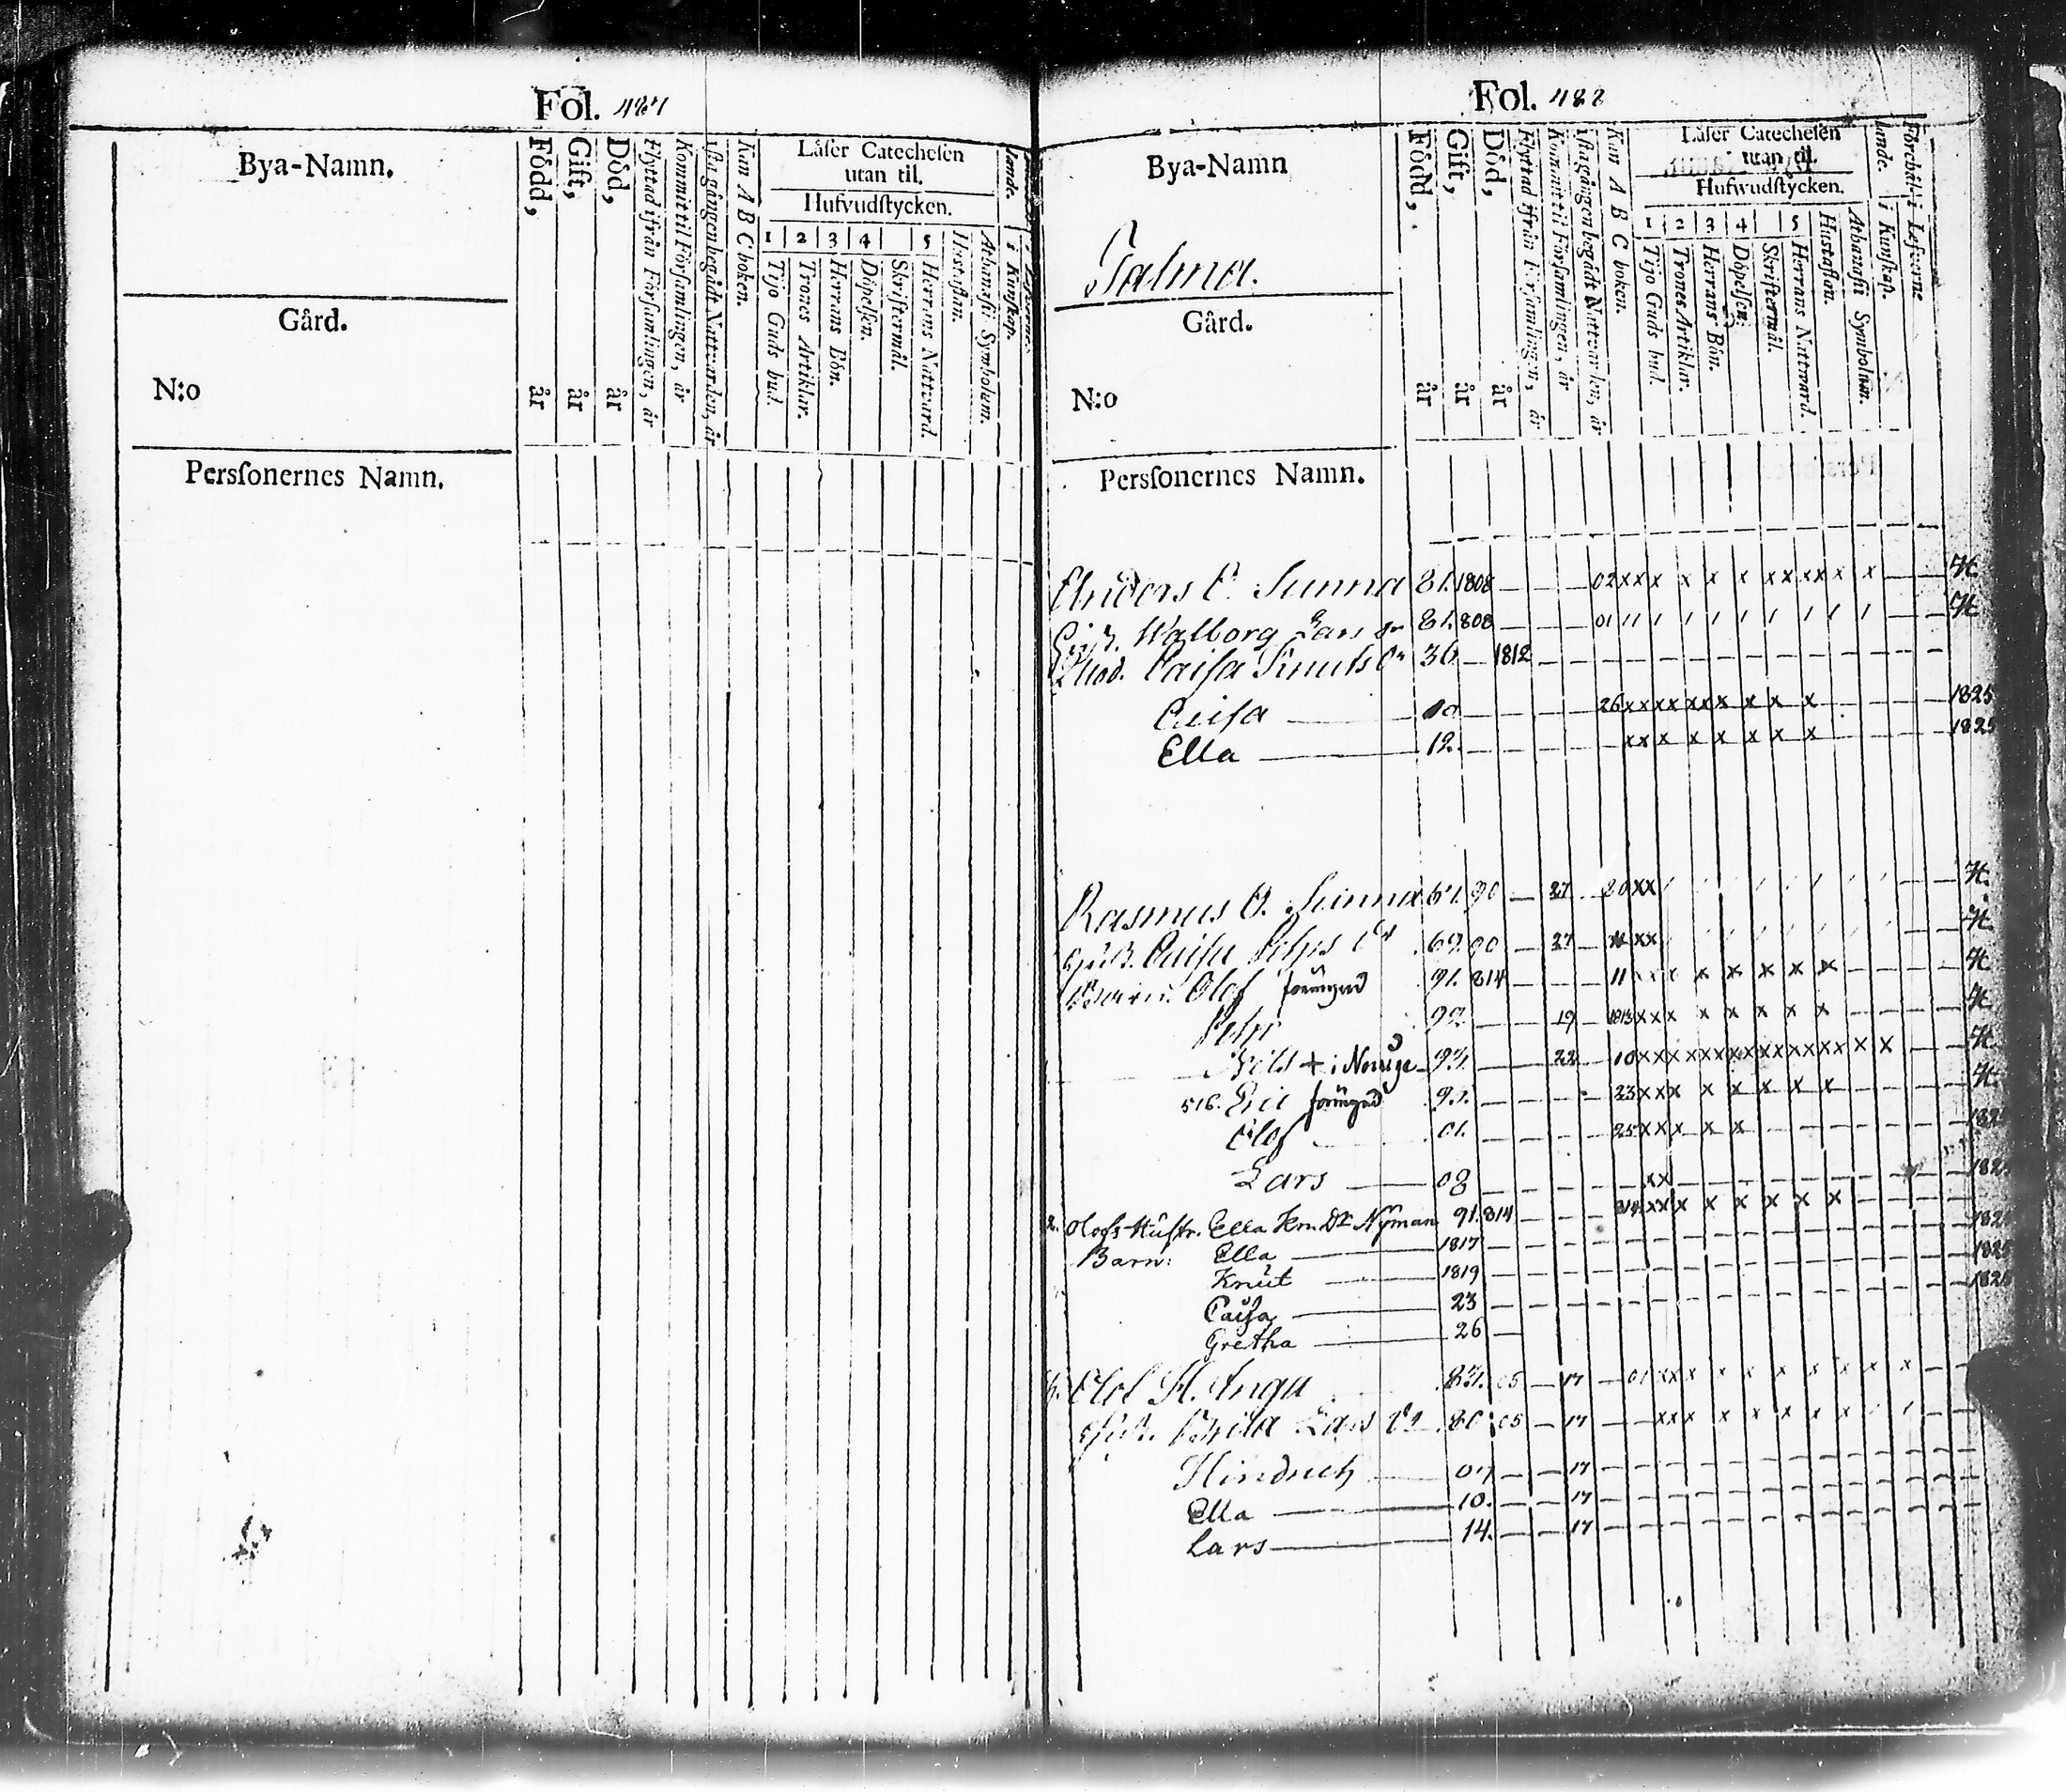 Fol. 487
Bya-Namn.
Gård.
N:o
Persſonernes Namn.
Född, år
Gift, år
Död, år
Flyttad ifrån Förſamlingen, år
Kommit til Förſamlingen, år
1ſta gången begådt Nattvarden, år
Kan A B C boken.
Läſer Catecheſen
utan til.
Hufvudſtycken.
1 2 3 4 5
Tijo Guds bud.
Trones Artiklar.
Herrans Bön.
Döpelſen.
Skriftermål.
Herrans Nattvard.
Hustaflan.
Athanaſii Symbolum.
i Kunſkap.
Fol. 488
Bya-Namn
Talma.
Gård.
N:o
Persſonernes Namn.
Född, år
Gift, år
Död, år
Flyttad ifrån Förſamlingen, år
Kommit til Förſamlingen, år
1ſta gången begådt Nattvarden, år
Kan A B C boken.
Läſer Catecheſen
utan til.
Hufvudſtycken.
1 2 3 4 5
Tijo Guds bud.
Trones Artiklar.
Herrans Bön.
Döpelſen.
Skriftermål.
Herrans Nattvard.
Hustaflan.
Athanaſii Symbolum.
i Kunſkap.
i Lefverne
Anders O. Sunna 81. 1808 — — — 02 x x x x x x x x x x x x —
Walborg Lars 81. 808 — — — 01
Caisa Knuts 36 — 1812 — — —
Caisa — 10 — — — 26 x x x x x x x x x x — — 1825
Ella — 12. — — — x x x x x x x x — — 1825
Rasmus O. Sunna 67. 90 — 27 20 x x
Caisa Pehrs 69. 90 — 27 — x x
Barn. Olof 91. 814 — — — 11 x x x x x x x x — — —
Pehr 92 — — 19 1813 x x x x x x x x — — —
Nils + i Norrige 93. — — 22 10 x x x x x x x x x x x x x x —
516. Eric 95. — — — 23 x x x x x x x x — —
Olof 01. — — — 25 x x x x x x — —
Lars — 08 — — — x x — —
Olofs Hustr. Ella Nÿman 91. 814 — — — x x x x x x x x — —
Barn: Ella — 1817 — — —
Knut — 1819 — — —
Caisa — 23 — — —
Gretha — 26 —
Olof H. Inga 05 — 17 — 01 x x x x x x x x x x — —
Brita Lars 80. 05 — 17 — x x x x x x x x — —
Hindrich — 07 — — 17 — — —
Ella — 10. — — 17 — — —
Lars — 14. — — 17 — — —